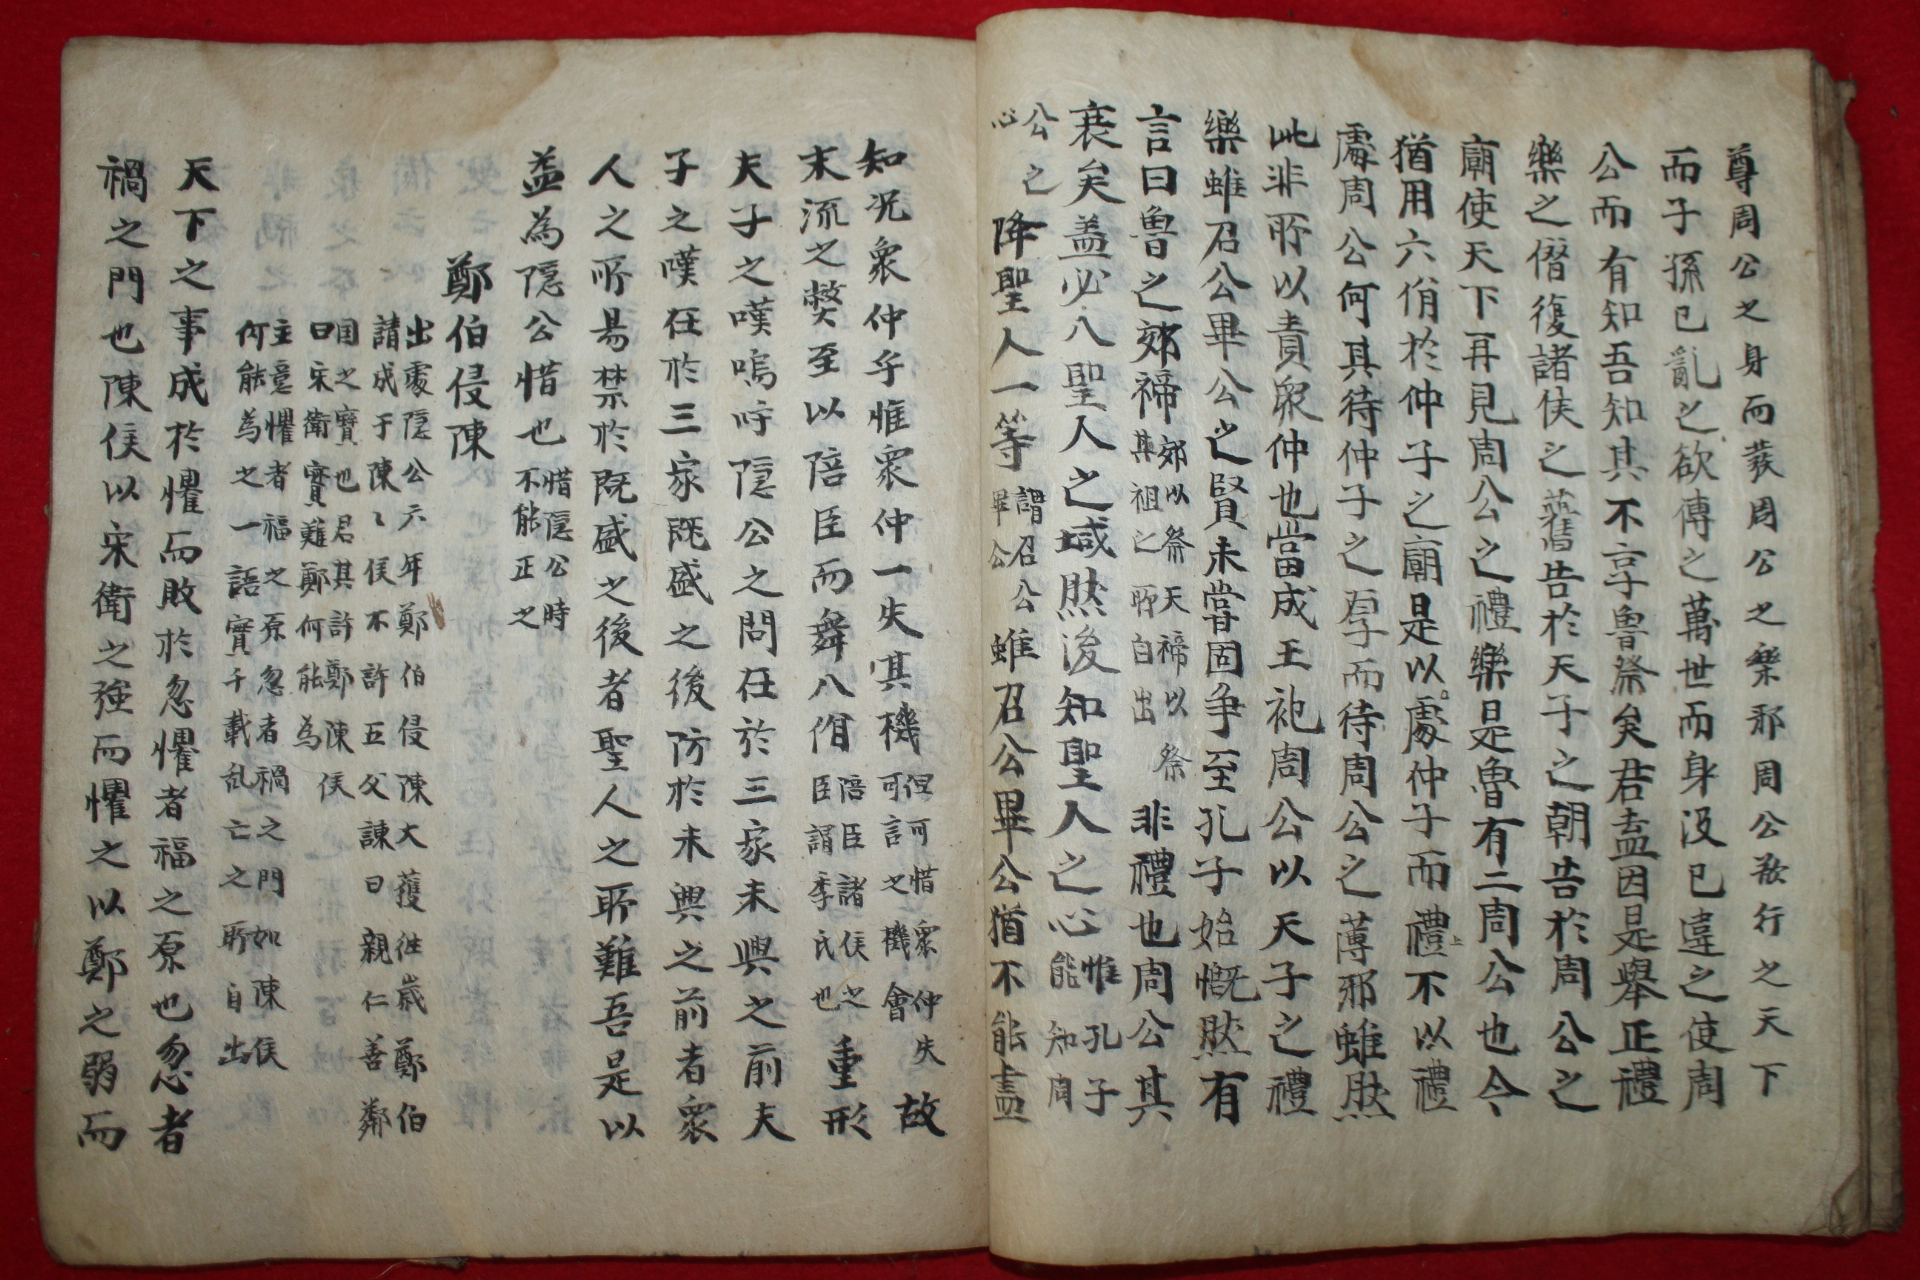 尊周公之身而蔑周公之樂邪周公欲行之天下
而子孫已亂之欲傳之萬世而身沒已違之使周
公而有知吾知其不享魯祭矣君盍因是舉正禮
樂之僭復諸侯之舊告於天子之朝告於周公之
廟使天下再見周公之禮樂是魯有二周公也今
猶用六佾於仲子之廟是以處仲子而禮不以禮
處周公何其待仲子之厚而待周公之薄邪雖然
此非所以責衆仲也當成王祀周公以天子之禮
樂雖召公畢公之賢未嘗固爭至孔子始慨然有
言曰魯之郊禘郊以祭天禘以祭其祖之所自出非禮也周公其
衰矣盖必入聖人之域然後知聖人之心惟孔子能知周
公之心降聖人一等謂召公畢公雖召公畢公猶不能盡
知况衆仲乎惟衆仲一失其機但可惜衆仲失可言之機會故
末流之弊至以陪臣而舞八佾陪臣諸侯之臣謂季氏也重形
夫子之嘆嗚呼隱公之問在於三家未興之前夫
子之嘆在於三家既盛之後防於未興之前者衆
人之所易禁於既盛之後者聖人之所難吾是以
益為隱公惜也惜隱公時不能正之
鄭伯侵陳
出處隱公六年鄭伯侵陳大獲往歲鄭伯
請成于陳〻侯不許五父諫曰親仁善鄰
国之寶也君其許鄭陳侯
曰宋衛實難鄭何能為
主意懼者福之原忽者禍之門如陳侯
何能為之一語實千載乱亡之所自出
天下之事成於懼而敗於忽懼者福之原也忽者
禍之門也陳侯以宋衛之強而懼之以鄭之弱而